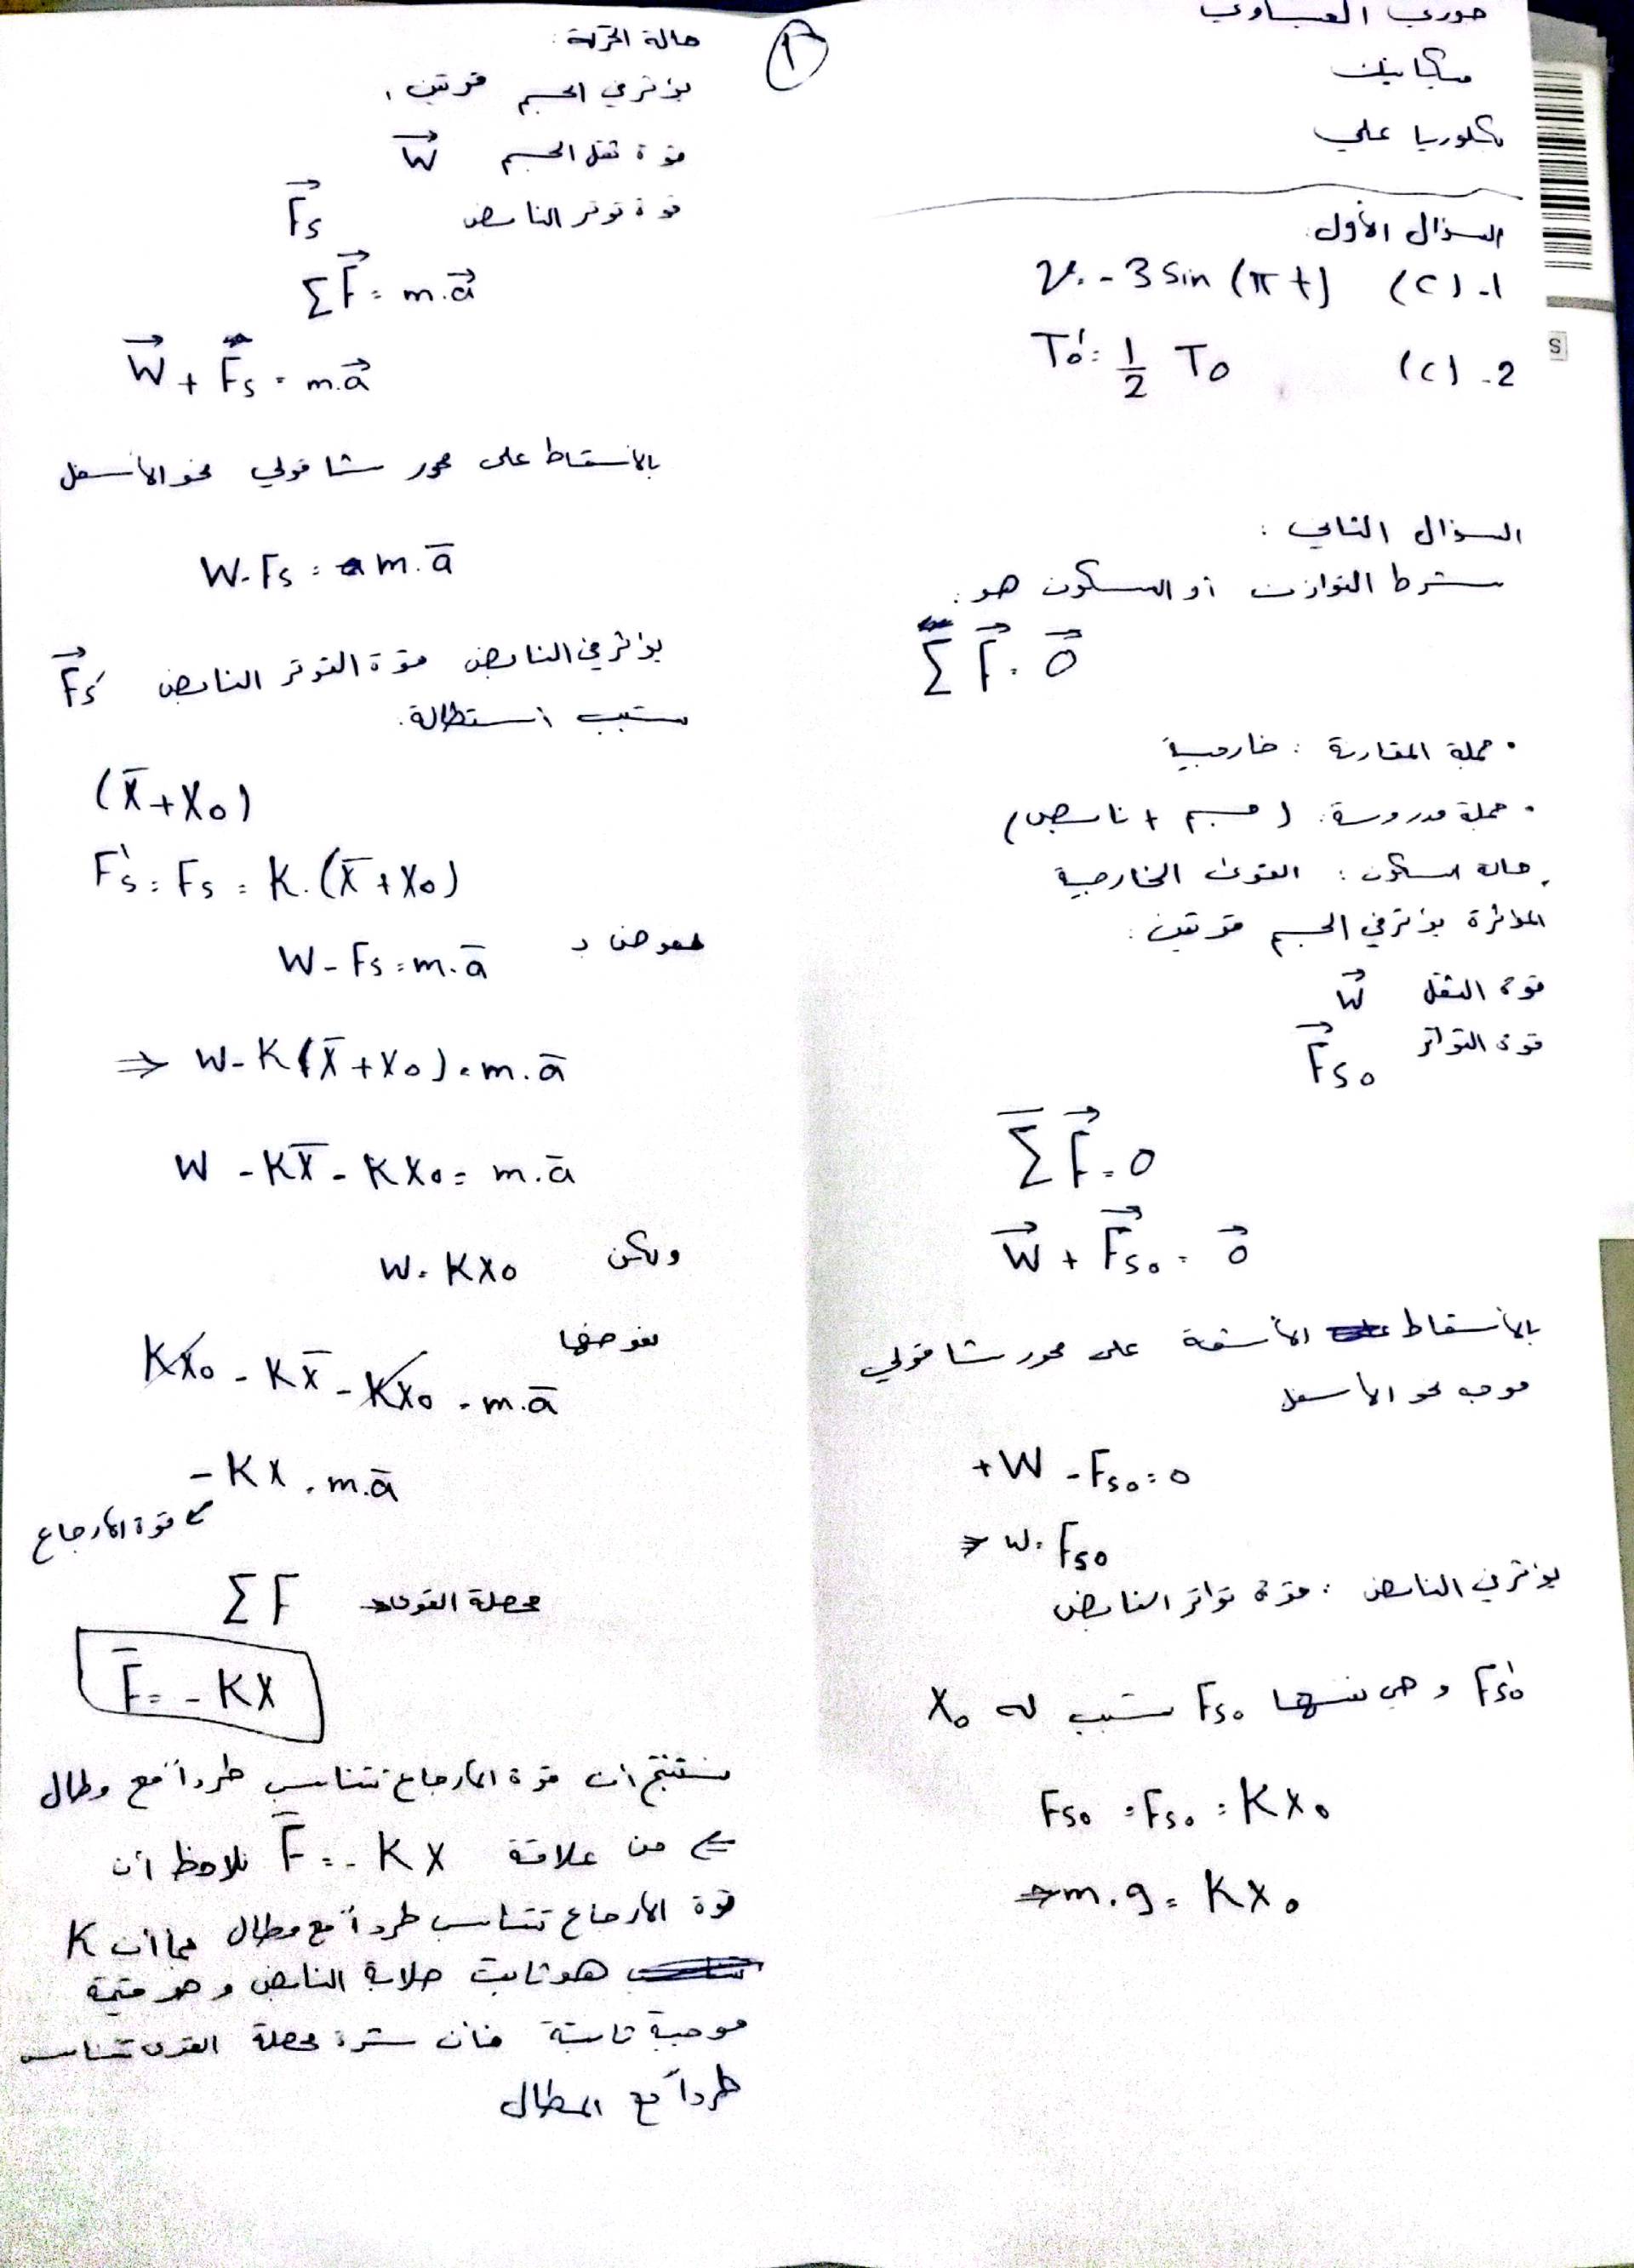 ①
حوري العيساوي
ميكانيك
بكلوريا علمي
السؤال الأول:
1- (c) v = -3 sin (πt)
2- (c) T₀' = 1/2 T₀
السؤال الثاني:
شرط التوازن أو السكون هو:
Σ F⃗ = 0⃗
• جملة المقارنة: خارجية
• جملة مدروسة: (جسم + نابض)
• حالة السكون: القوى الخارجية
المؤثرة يؤثر في الجسم قوتين:
قوة الثقل W⃗
قوة التواتر F⃗s₀
Σ F⃗ = 0
W⃗ + F⃗s₀ = 0⃗
بالأسقاط الأشعة على محور شاقولي
موجه نحو الأسفل
+W - Fs₀ = 0
⇒ W = Fs₀
يؤثر في النابض: قوة تواتر النابض
Fs₀' و هي نفسها Fs₀ تسبب له x₀
Fs₀ = Fs₀ = K x₀
⇒ m.g = K x₀
حالة الحركة:
يؤثر في الجسم قوتين:
قوة ثقل الجسم W⃗
قوة توتر النابض F⃗s
ΣF⃗ = m.a⃗
W⃗ + F⃗s = m.a⃗
بالأسقاط على محور شاقولي نحو الأسفل
W - Fs = m.a̅
يؤثر في النابض قوة التوتر النابض F⃗s'
تسبب استطالة.
(x̅ + x₀)
F's = Fs = K.(x̅ + x₀)
نعوض بـ
W - Fs = m.a̅
⇒ W - K(x̅ + x₀) = m.a̅
W - Kx̅ - Kx₀ = m.a̅
ولكن W = Kx₀
نعوضها
Kx₀ - Kx̅ - Kx₀ = m.a̅
-Kx = m.a̅
قوة الأرجاع
محصلة القوى ΣF
F̅ = -Kx
نستنتج أن قوة الأرجاع تتناسب طرداً مع وطال
⇐ من علاقة F̅ = -Kx نلاحظ أن
قوة الأرجاع تتناسب طرداً مع مطال بما أن K
هو ثابت صلابة النابض و هو قيمة
موجبة ثابتة فان شدة محصلة القوى تتناسب
طرداً مع المطال